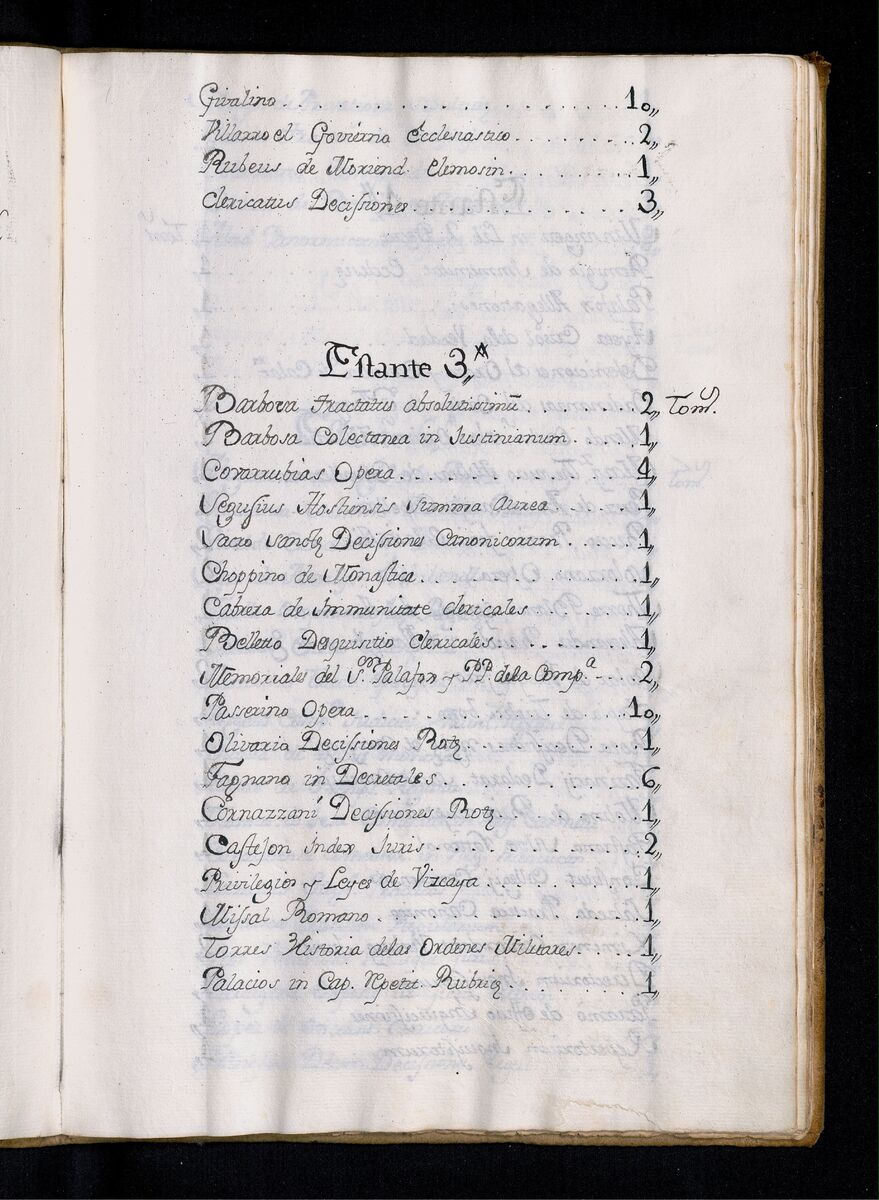 Givalino . . . . . . . . . . . . . . . . 10,,
Villarroel Govierno Ecclesiastico . . . . 2,,
Rubeus de Moriend. elemosin . . . . . . . . 1,,
Clericatus Decissiones . . . . . . . . . . 3,,
Estante 3,,
Barbova tractatus absolutissimũ 2,, Tomˢ.
Barbosa Colectanea in Iustinianum . . . . 1,,
Covarrubias Opera . . . . . . . . . . . . 4,,
Segusius Hostiensis summa aurea . . . . . 1,,
Sacro Decissiones Canonicorum . . . . . 1,,
Choppino de Monastica . . . . . . . . . . 1,,
Cabrera de immunitate clericales . . . . . 1,,
Belletto Desquisitio Clericales . . . . . . 1,,
Memoriales del Sᵒʳ Palafox y PP. dela Compᵃ - . . 2,,
Passerino Opera . . . . . . . . . . . . . 10,,
Olivario Decissiones Rotę . . . . . . . . 1,,
Fagnano in Decretales . . . . . . . . . . 6,,
Cornazzaní Decissiones Rotę . . . . . . . 1,,
Castejon index Iuris . . . . . . . . . . . 2,,
Privilegios y Leyes de Vizcaya . . . . . . 1,,
Missal Romano . . . . . . . . . . . . . . 1,,
Torres Historia delas Ordenes Militares . . . 1,,
Palacios in Cap. Rubrię . . . . . . . 1,,